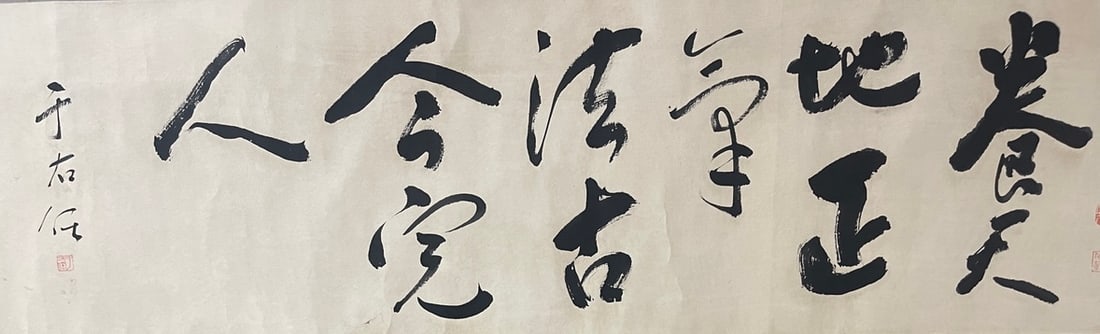 養天
地正
氣
法古
今完
人
于右任